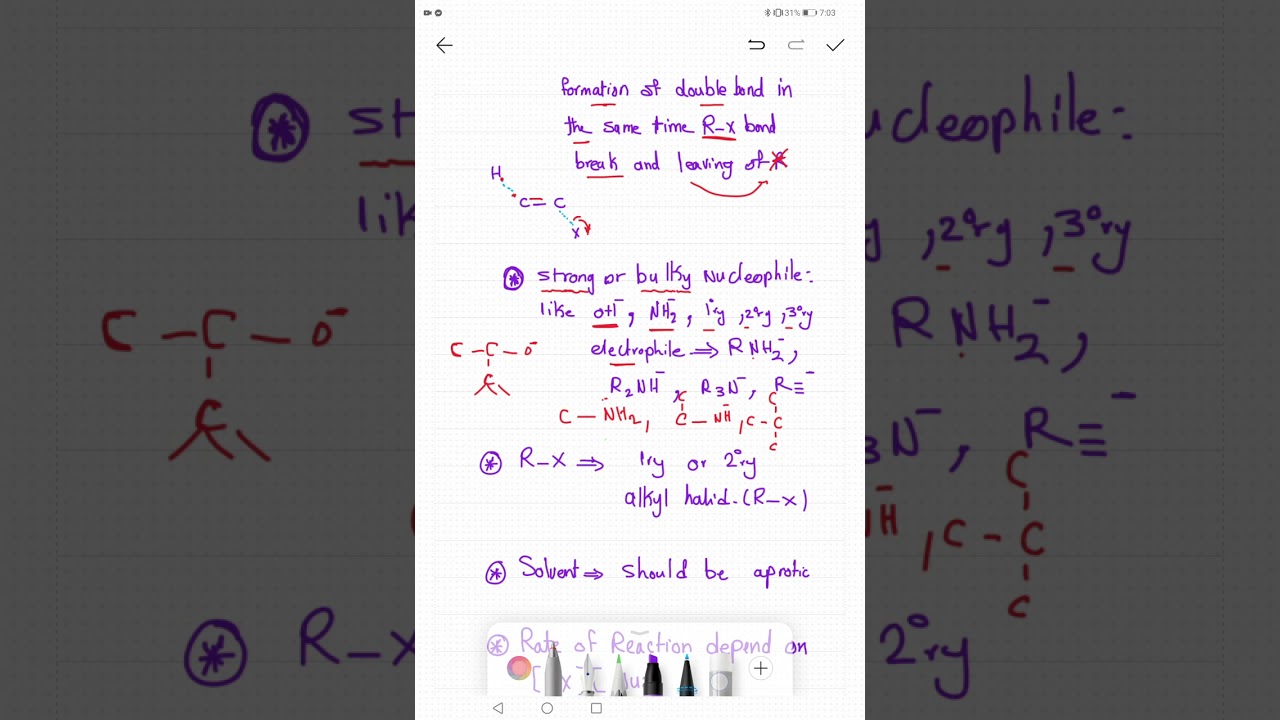 31% 7:03
formation of double bond in
the same time R-X bond
break and leaving of X
H
C = C
X
⊛ strong or bulky Nucleophile:
like OH⁻, NH₂⁻, 1°ry, 2°ry, 3°ry
electrophile ⇒ RNH₂⁻,
R₂NH⁻, R₃N⁻, R≡⁻
C - C - O⁻
C
C - NH₂, C - NH, C - C
C
C
C
⊛ R-X ⇒ 1ry or 2°ry
alkyl halid. (R-X)
⊛ Solvent ⇒ should be aprotic
⊛ Rate of Reaction depend on